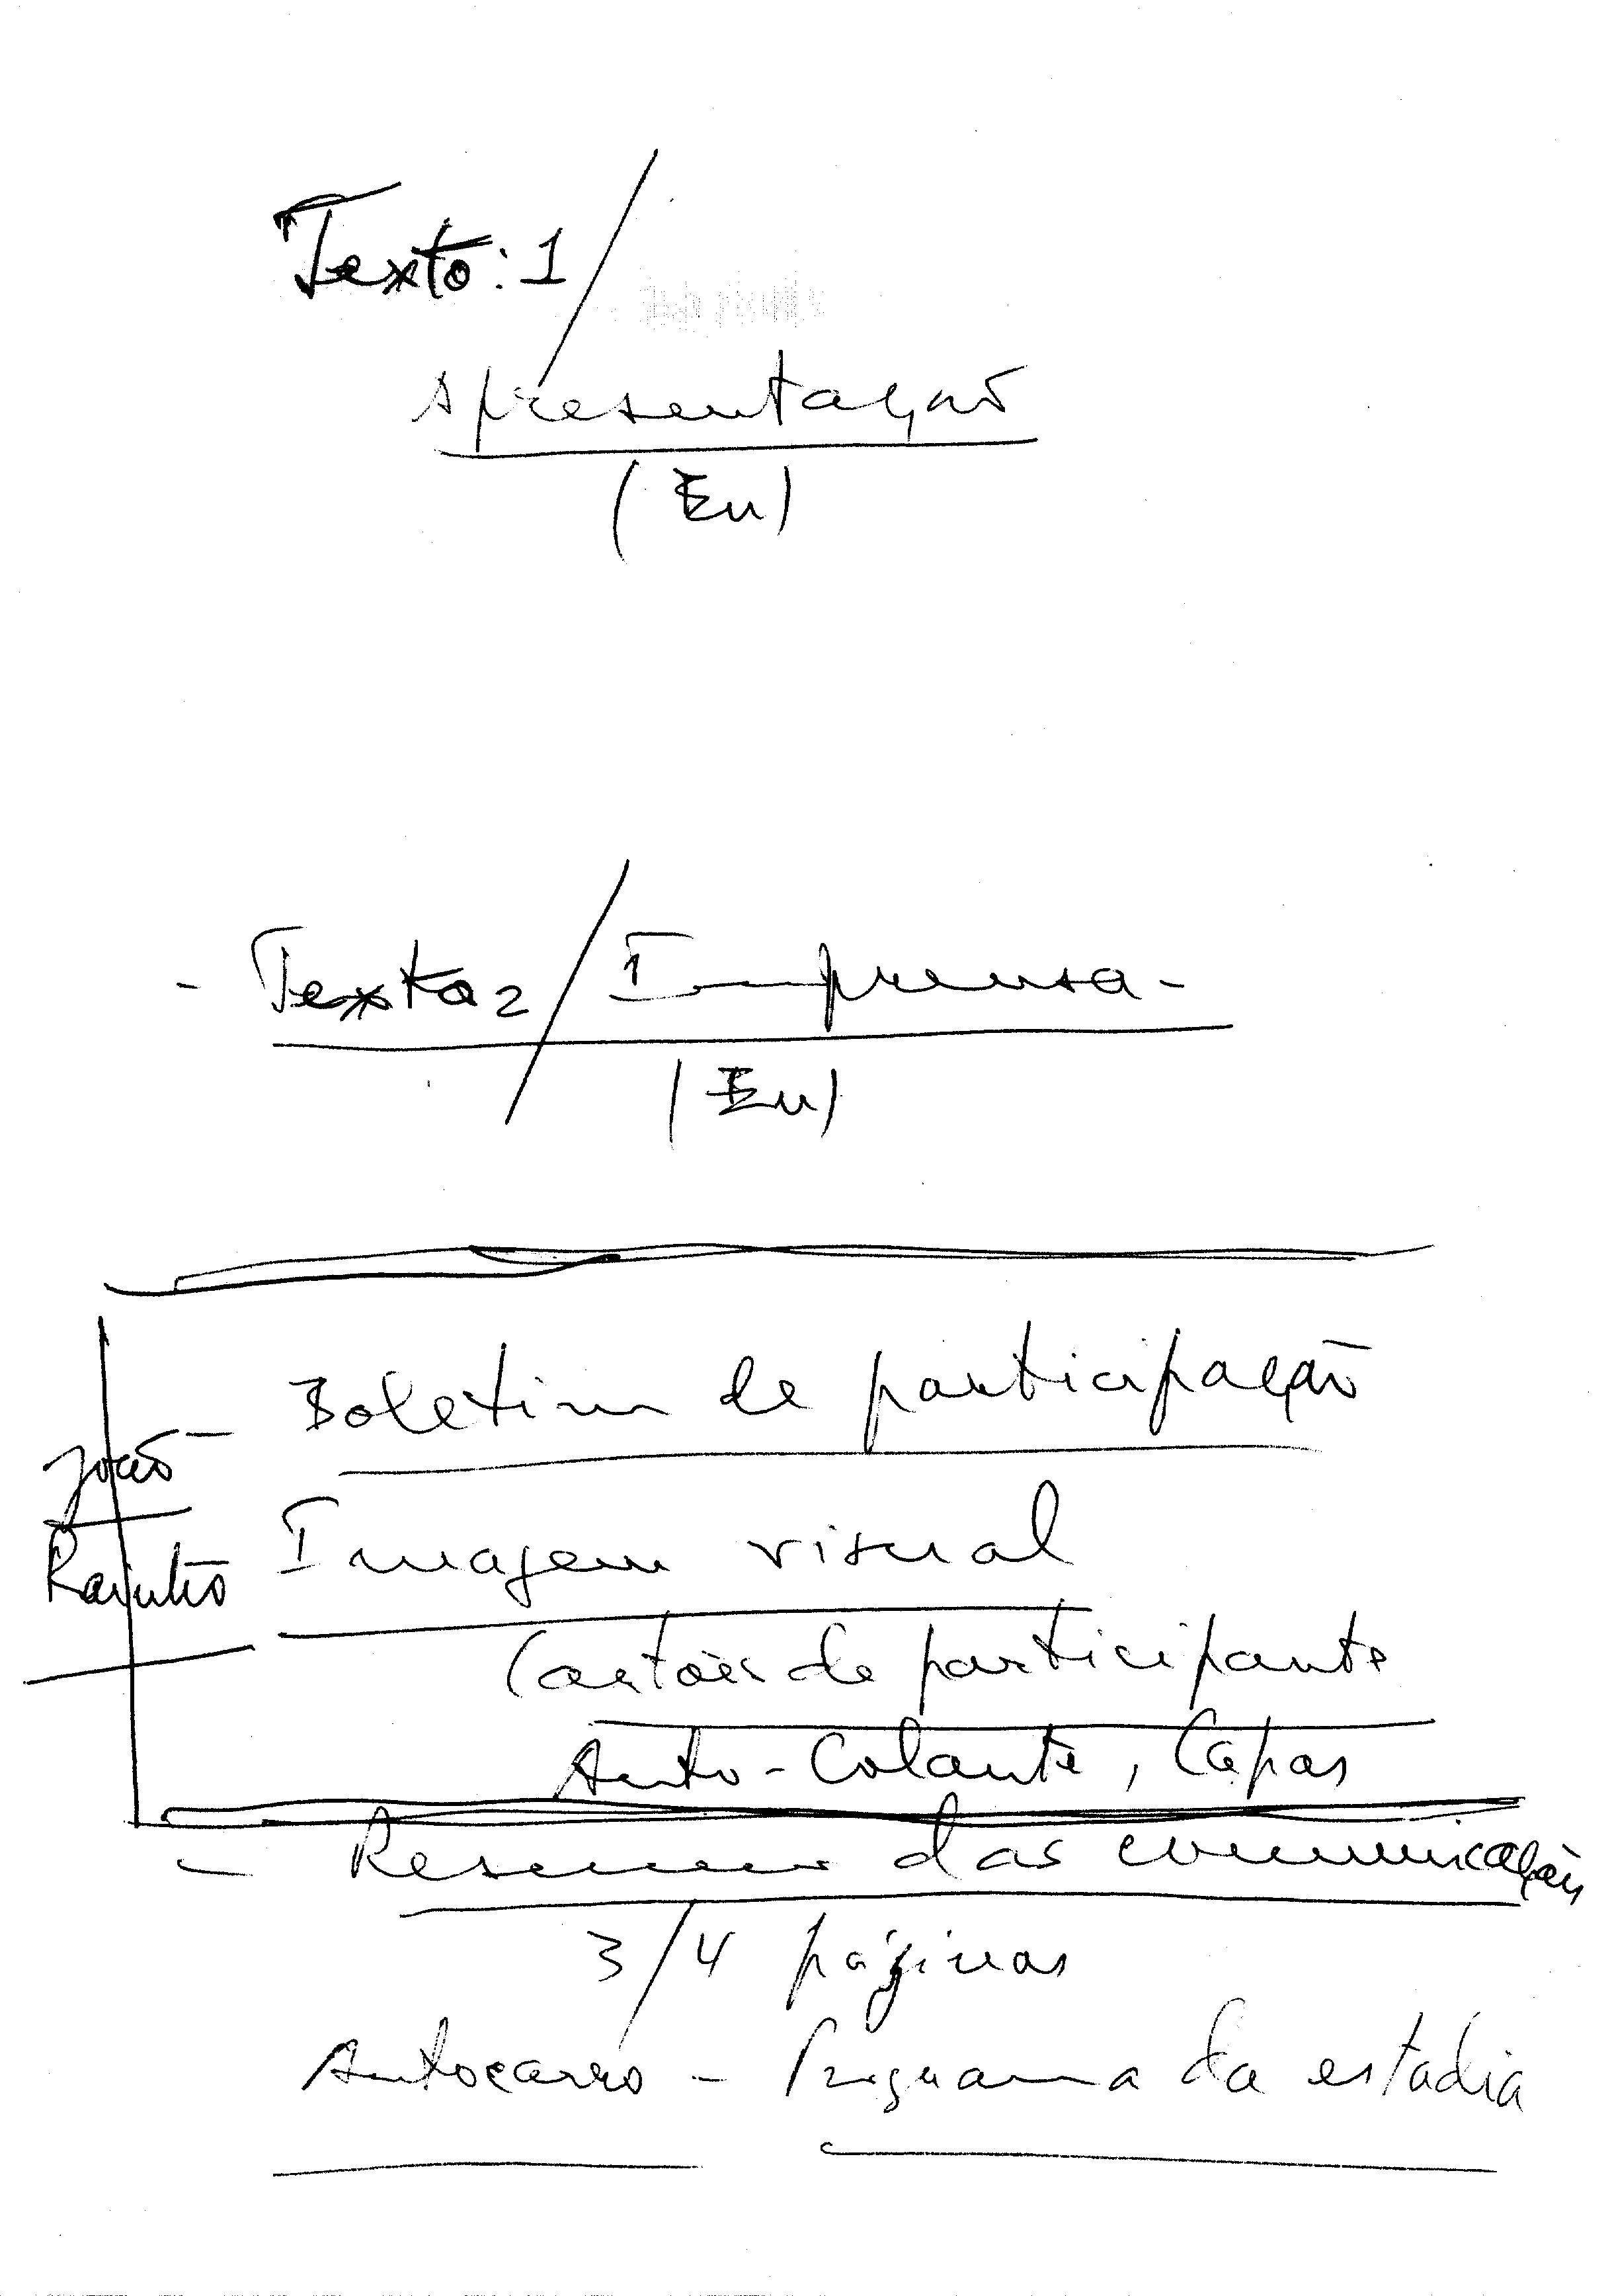 Texto: 1 /
Apresentação
(Eu)
- Texto 2 / Imprensa -
(Eu)
Boletim de participação
João -
Imagem visual
Cartões de participante
Auto-Colante, Capas
- Resumo das comunicações
3/4 páginas
Autocarro - Programa da estadia